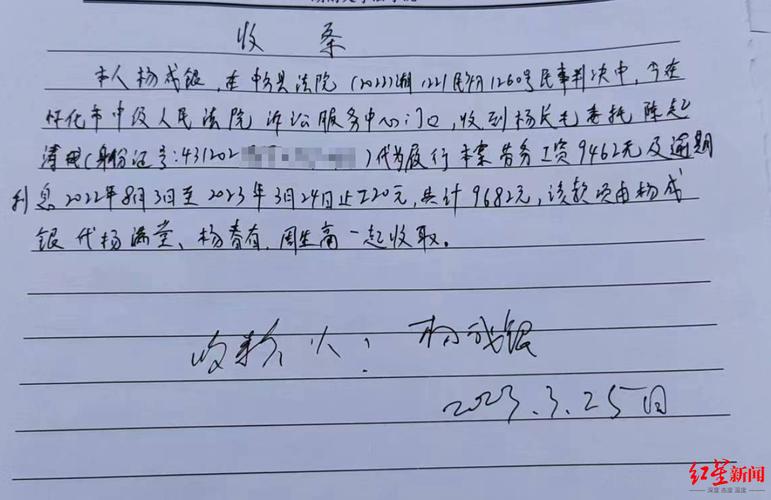 收条
本人杨成银,在中方县法院(2022)湘1221民初1260号民事判决中,今在
怀化市中级人民法院诉讼服务中心门口,收到杨长毛委托陈起
清用(身份证号:431202)代为履行本案劳务工资9462元及逾期
利息2022年8月3日至2023年3月24日止220元,共计9682元,该款项由杨成
银代杨满堂、杨青有、周生高一起收取。
收款人:杨成银
2023.3.25日
红星新闻
深度 态度 温度